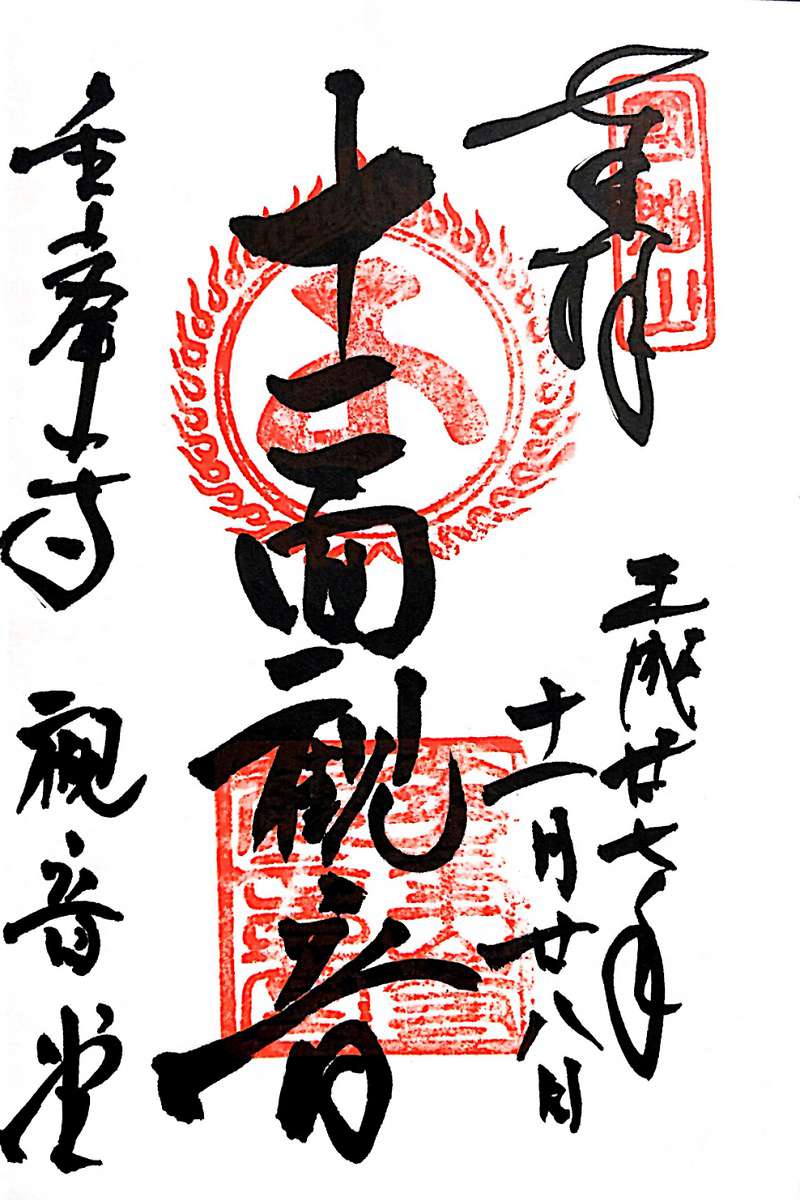 奉拝
國軸山
平成廿七年
十一月廿八日
十一面観音
金峯山寺 観音堂